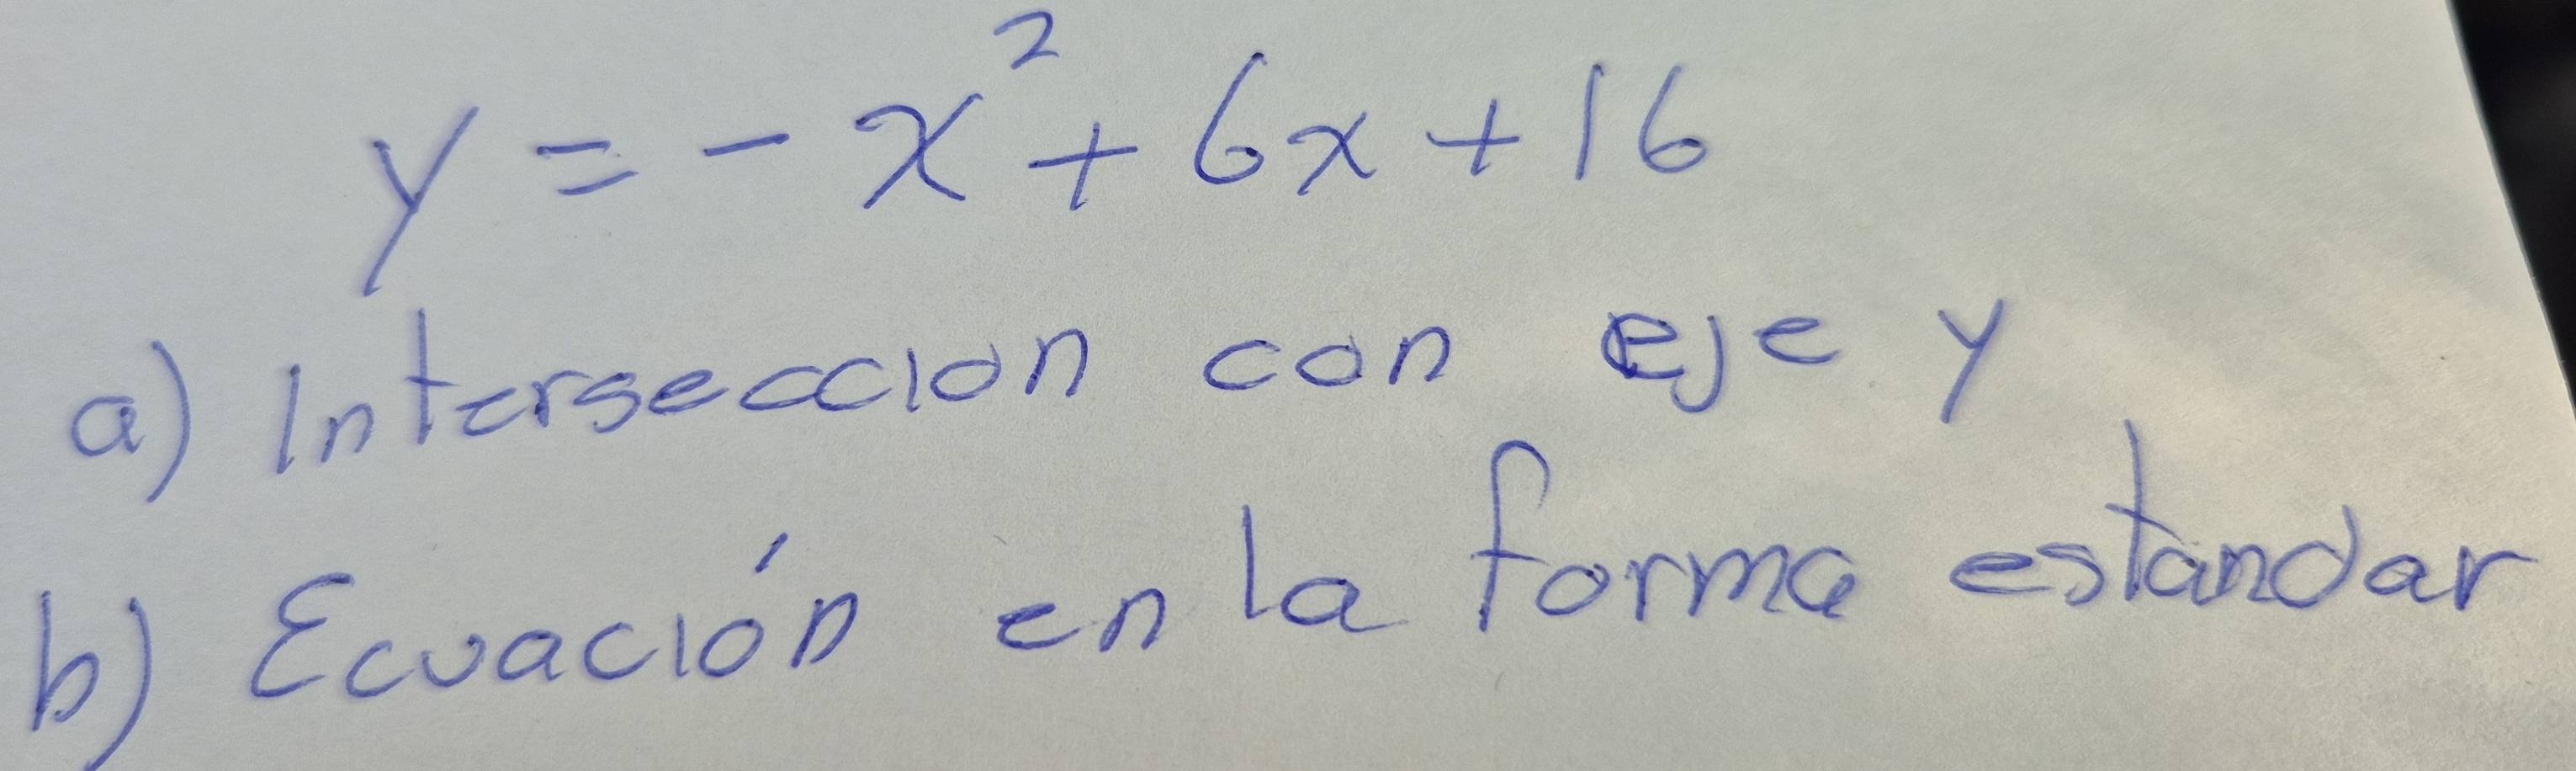 y = - x² + 6x + 16
a) Intersección con eje y
b) Ecuación en la forma estandar